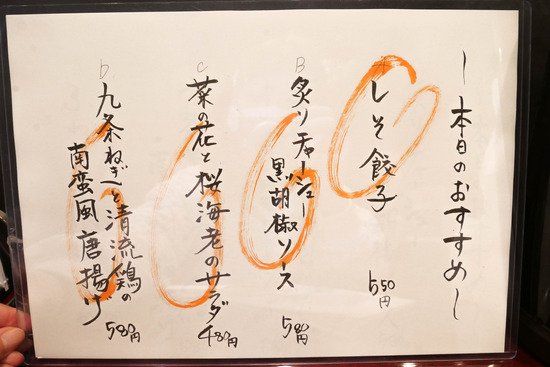 ー本日のおすすめー
しそ餃子
550円
B
炙りチャーシュー
黒胡椒ソース
580円
C
菜の花と桜海老のサラダ
480円
D
九条ねぎと清流鶏の
南蛮風唐揚げ
580円